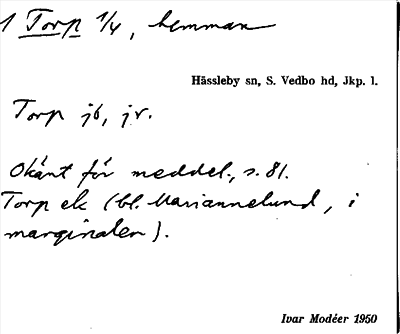 1 Torp 1/4, hemman
Hässleby sn, S. Vedbo hd, Jkp. l.
Torp jb, jr.
Okänt för meddel., s. 81.
Torp ek (bl. Mariannelund, i
marginalen).
Ivar Modéer 1950